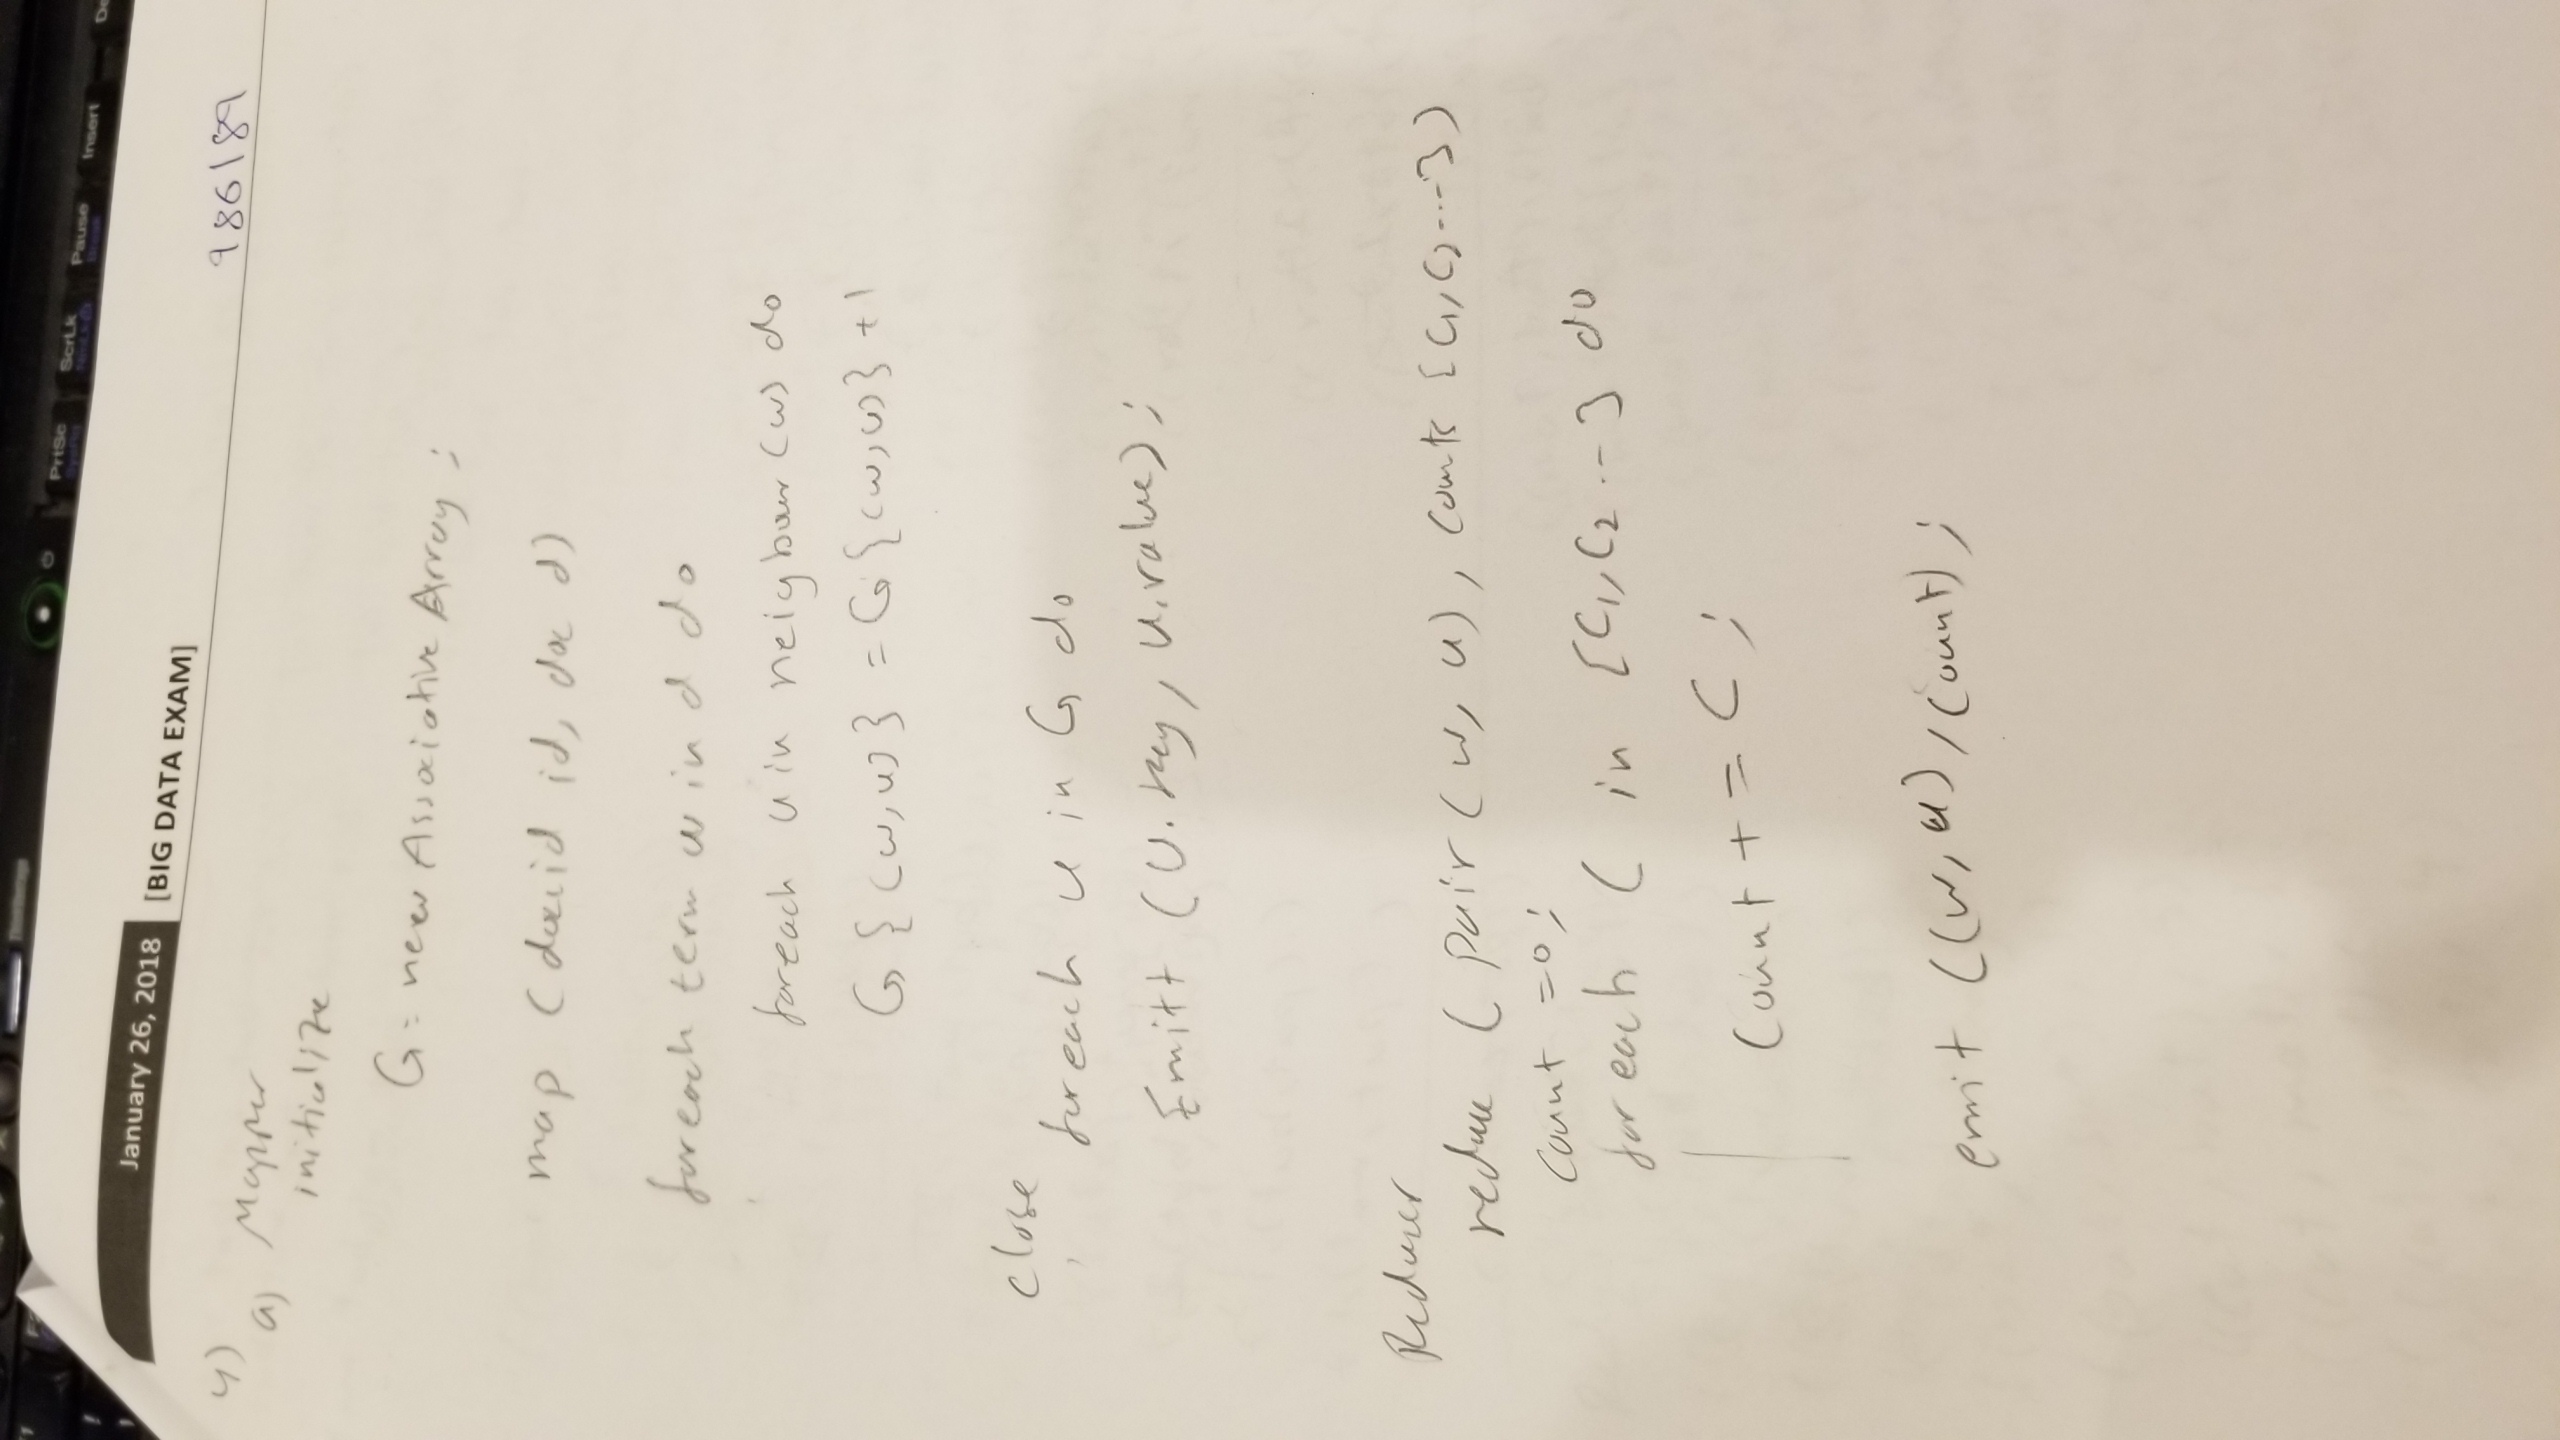 PrtSc
ScrLk
Pause
Break
Insert
January 26, 2018 [BIG DATA EXAM]
986189
4)
a) Mapper
initialize
G = new Associative Array ;
map (docid id, doc d)
foreach term w in d do
foreach u in neigbour (w) do
G { (w,u) } = G { (w,u) } + 1
close
foreach u in G do
Emitt (U. key, u.value) ;
Reducer
reduce ( pair ( w, u), counts [C1, C2 ...])
count = 0 ;
for each C in [C1, C2 ...] do
Count + = C ;
emit ((w, u), Count) ;